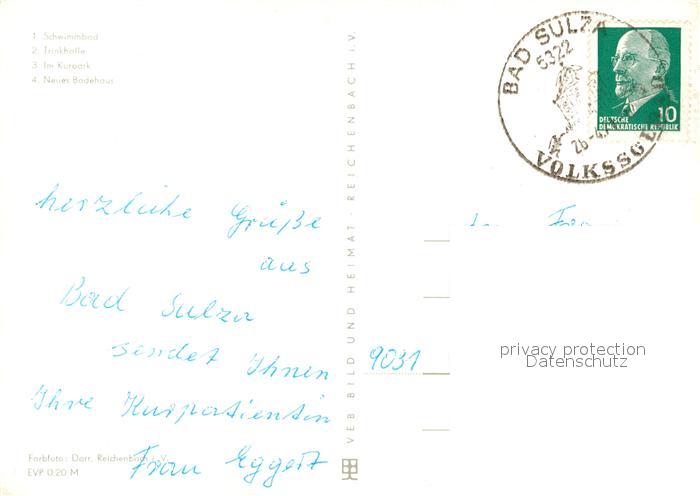 1. Schwimmbad
2. Trinkhalle
3. Im Kurpark
4. Neues Badehaus
herzliche Grüße
aus
Bad Sulza
sendet Ihnen
Ihre Kurpatientin
Frau Eggert
Farbfoto: Darr, Reichenbach i. V.
EVP 0.20 M
VEB BILD UND HEIMAT · REICHENBACH I. V.
BAD SULZA
6322
DEUTSCHE
DEMOKRATISCHE REPUBLIK
10
9031
privacy protection
Datenschutz